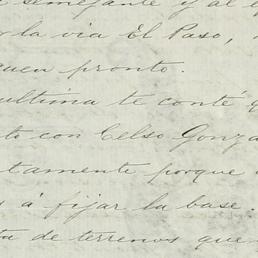 semejante y al
la via El Paso,
pronto.
ultima te conté
con Celso Gonza
tamente porque
á fijar la base.
de terrenos que